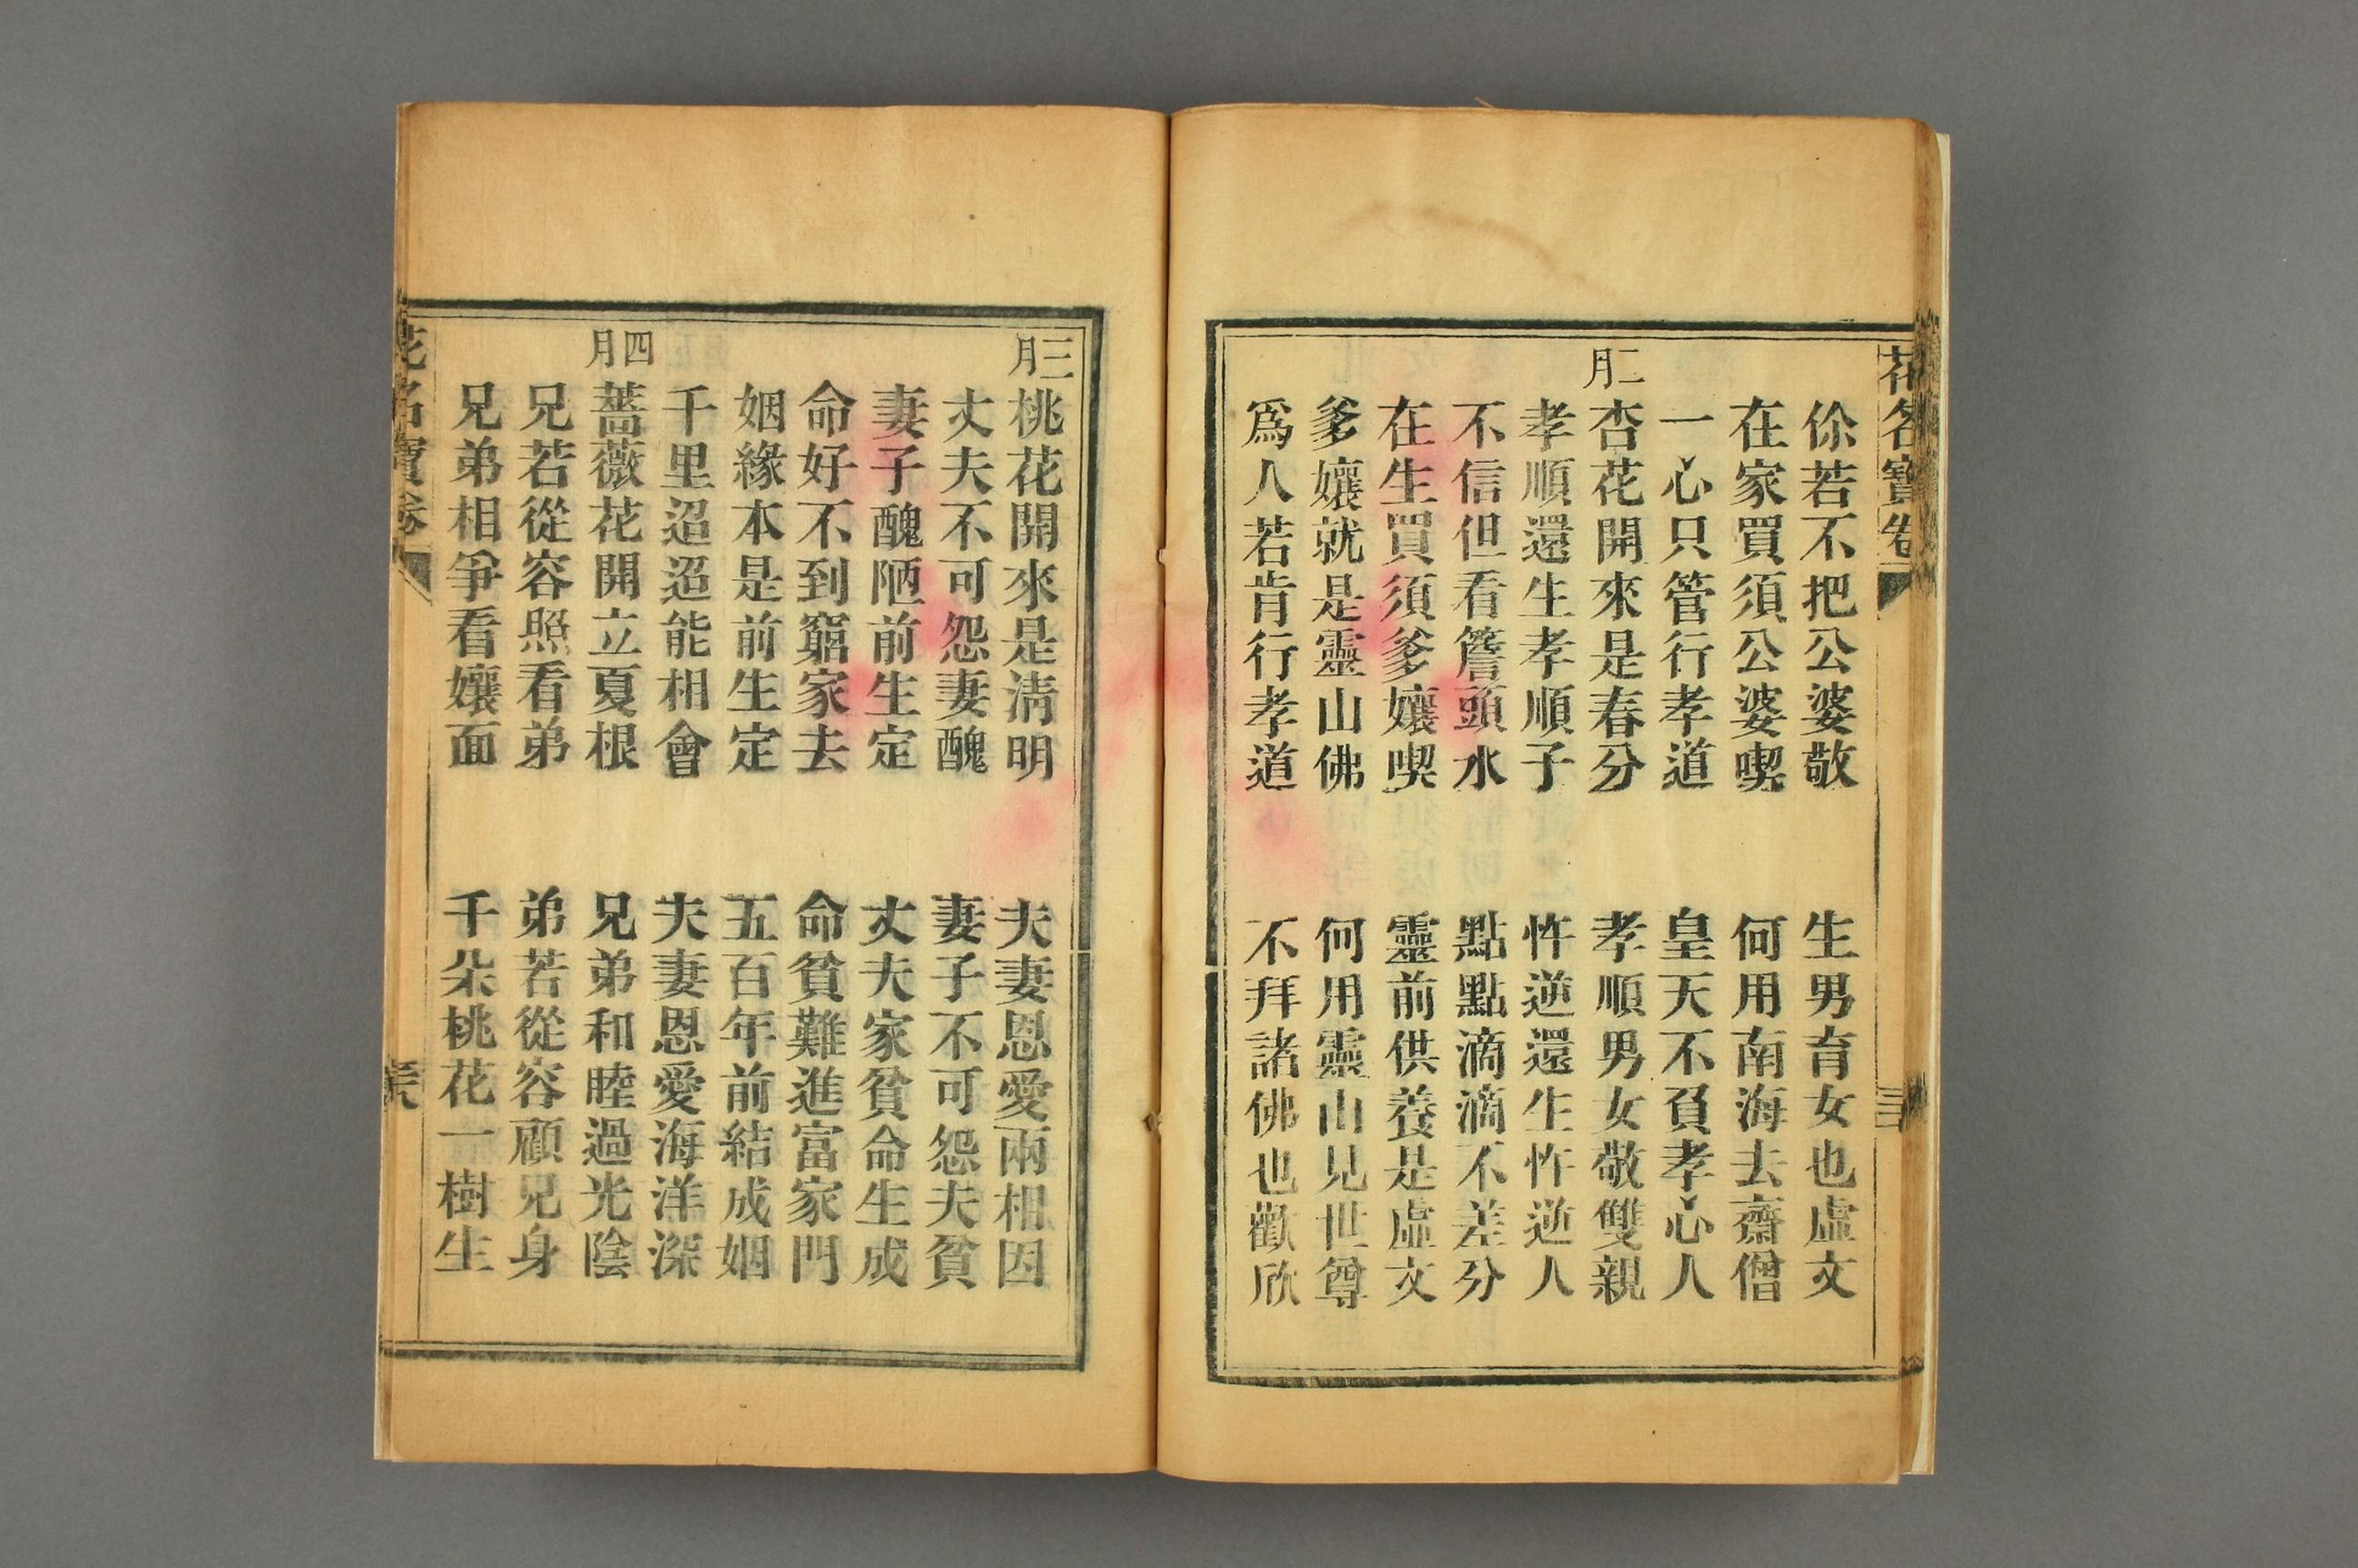 花名寶卷
你若不把公婆敬　生男育女也虛文
在家買須公婆喫　何用南海去齋僧
一心只管行孝道　皇天不負孝心人
二月
杏花開來是春分　孝順男女敬雙親
孝順還生孝順子　忤逆還生忤逆人
不信但看簷頭水　點點滴滴不差分
在生買須爹孃喫　靈前供養是虛文
爹孃就是靈山佛　何用靈山見世尊
爲人若肯行孝道　不拜諸佛也歡欣
三月
桃花開來是淸明　夫妻恩愛兩相因
丈夫不可怨妻醜　妻子不可怨夫貧
妻子醜陋前生定　丈夫家貧命生成
命好不到窮家去　命貧難進富家門
姻緣本是前生定　五百年前結成姻
千里迢迢能相會　夫妻恩愛海洋深
四月
薔薇花開立夏根　兄弟和睦過光陰
兄若從容照看弟　弟若從容顧兄身
兄弟相爭看孃面　千朵桃花一樹生
花名寶卷